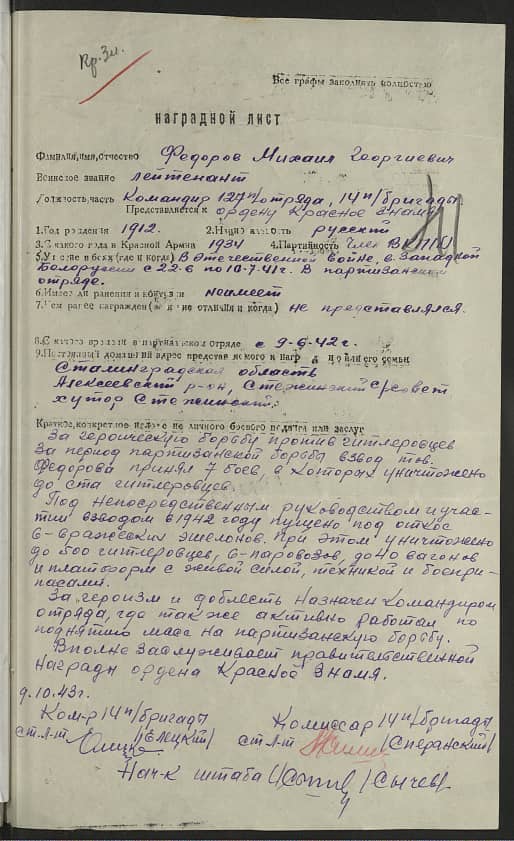 Кр. Зн.
Все графы заполнять полностью
наградной лист
Фамилия, имя, отчество Федоров Михаил Георгиевич
Воинское звание лейтенант
Должность, часть Командир 127 п/отряда, 14 п/бригады
Представляется к ордену Красное Знамя
1. Год рождения 1912. 2. Национальность русский
3. С какого года в Красной Армии 1934 4. Партийность Член ВКП(б)
5. Участие в боях (где и когда) В отечественной войне, в Западной
Белоруссии с 22-6 по 10-7-41г. В партизанском
отряде.
6. Имеет ли ранения и контузии неимеет
7. Чем ранее награжден (за какие отличия и когда) не представлялся.
8. С какого времени в партизанском отряде с 9-6-42г.
9. Постоянный домашний адрес представляемого к награде и его семьи
Сталинградская область
Алексеевский р-он, Стежинский с/совет
хутор Стежинский.
Краткое, конкретное изложение личного боевого подвига или заслуг
За героическую борьбу против гитлеровцев
За период партизанской борьбы взвод тов.
Федорова принял 7 боев, в которых уничтожено
до ста гитлеровцев.
Под непосредственным руководством и учас-
тии взводом в 1942 году пущено под откос
6-вражеских эшелонов. При этом уничтожено
до 500 гитлеровцев, 6-паровозов, до 40 вагонов
и платформ с живой силой, техникой и боепри-
пасами.
За героизм и доблесть назначен командиром
отряда, где так же активно работал по
поднятию масс на партизанскую борьбу.
Вполне заслуживает правительственной
награды ордена Красное Знамя.
9.10.43г.
Ком-р 14 п/бригады Комиссар 14 п/бригады
ст. л-т /Елецкий/ ст. л-т /Сперанский/
Нач-к штаба /Сычев/